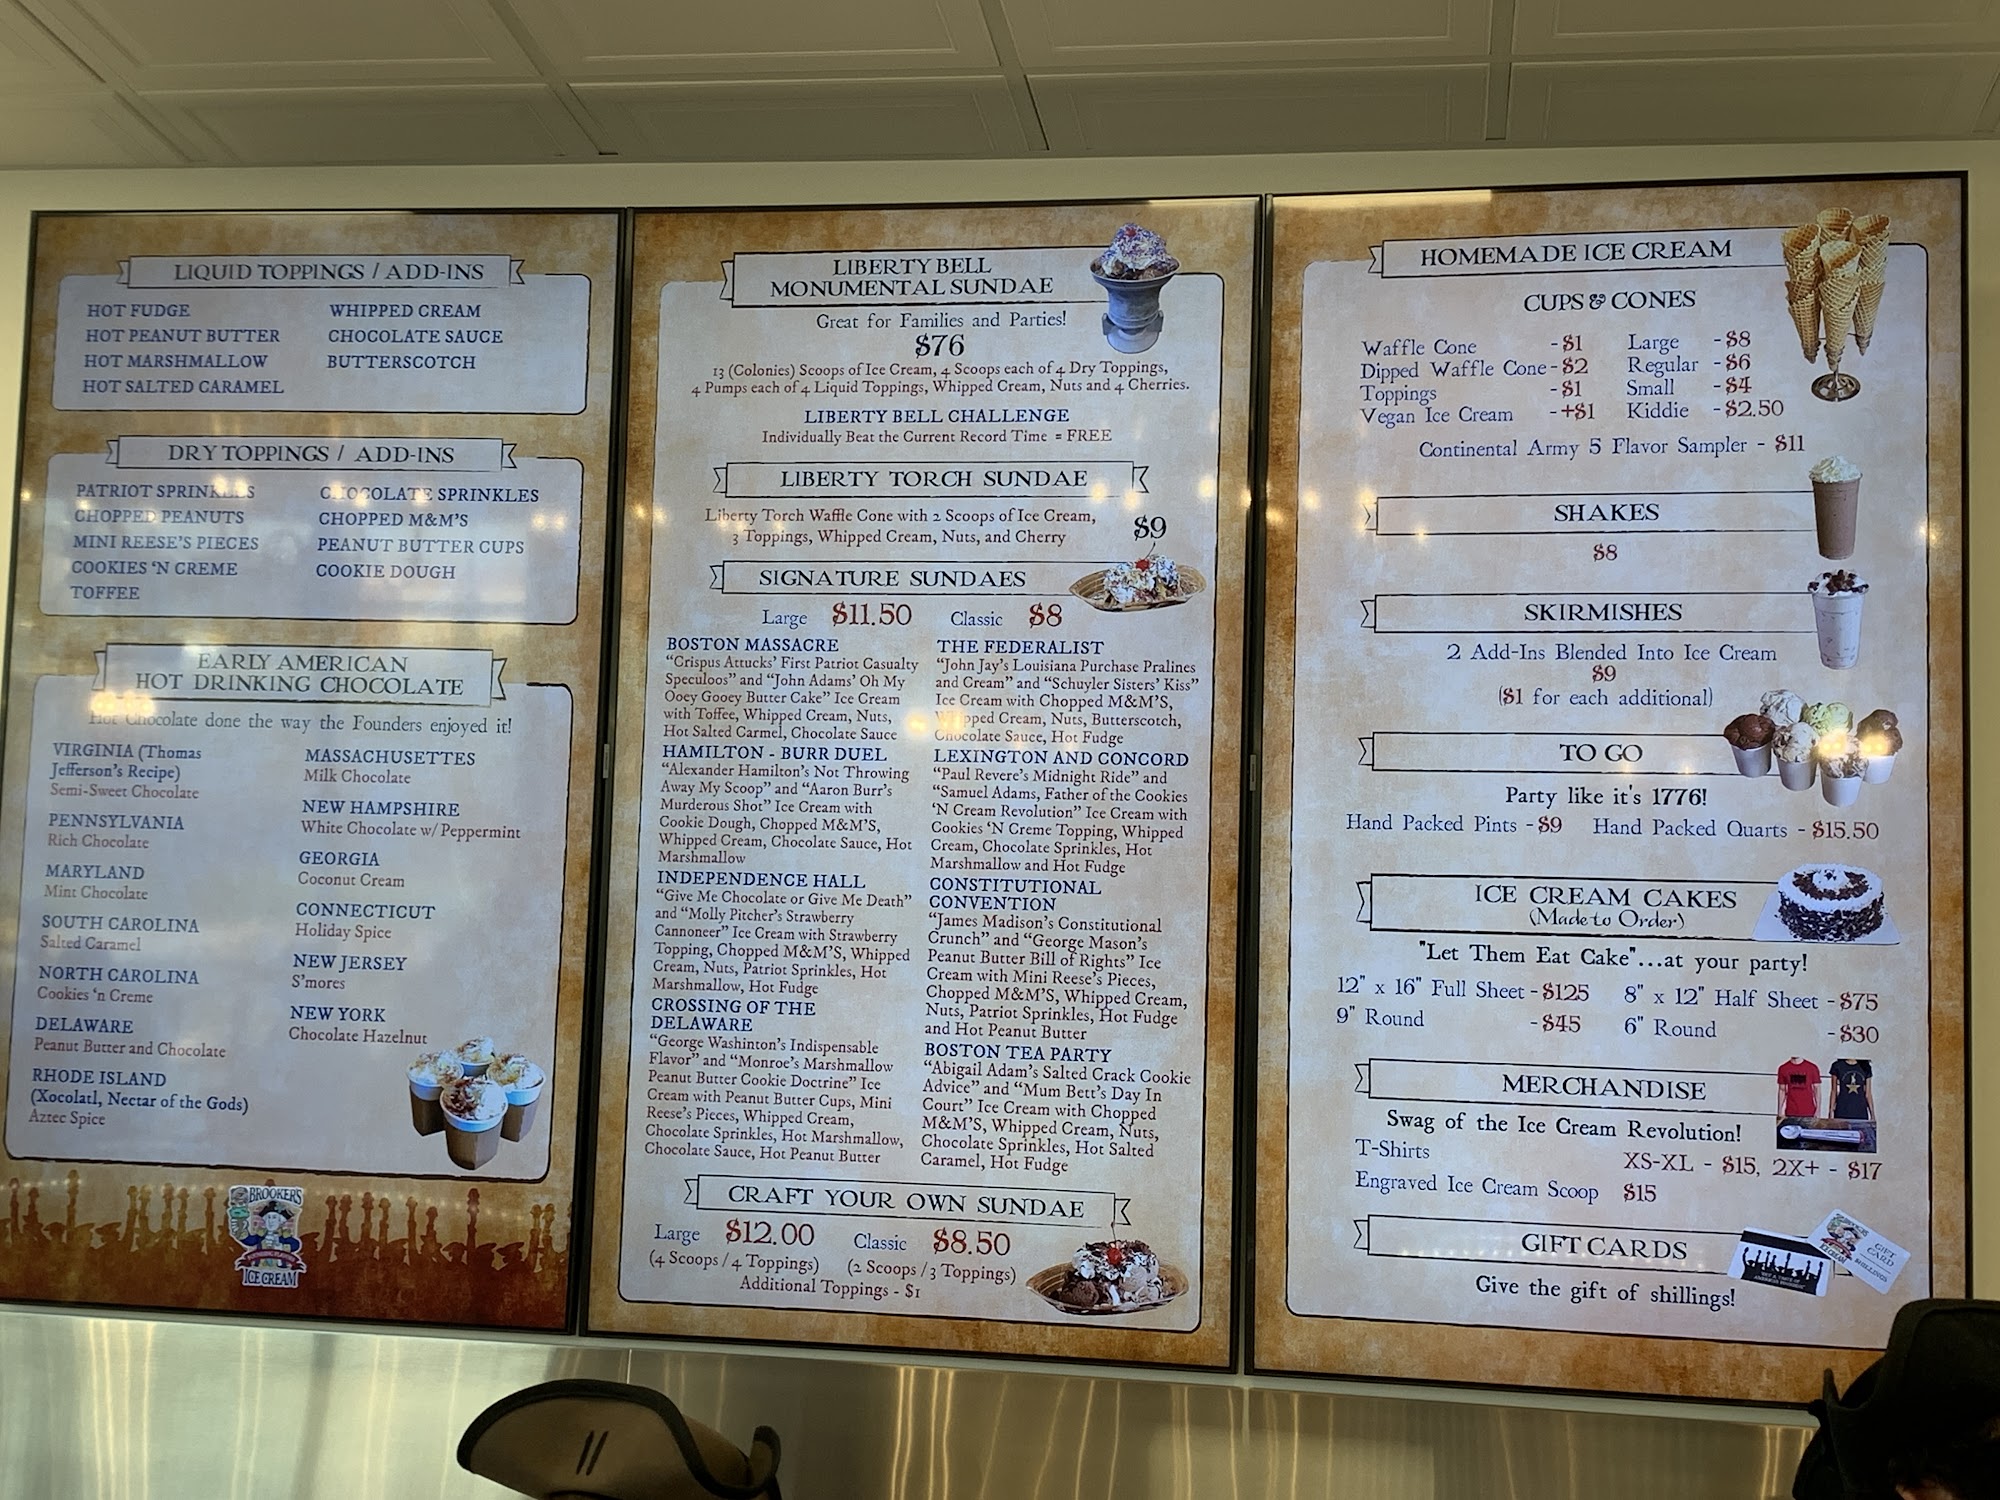 LIQUID TOPPINGS / ADD-INS
HOT FUDGE
HOT PEANUT BUTTER
HOT MARSHMALLOW
HOT SALTED CARAMEL
WHIPPED CREAM
CHOCOLATE SAUCE
BUTTERSCOTCH
DRY TOPPINGS / ADD-INS
PATRIOT SPRINKLES
CHOPPED PEANUTS
MINI REESE'S PIECES
COOKIES 'N CREME
TOFFEE
CHOCOLATE SPRINKLES
CHOPPED M&M'S
PEANUT BUTTER CUPS
COOKIE DOUGH
EARLY AMERICAN
HOT DRINKING CHOCOLATE
Hot Chocolate done the way the Founders enjoyed it!
VIRGINIA (Thomas
Jefferson's Recipe)
Semi-Sweet Chocolate
PENNSYLVANIA
Rich Chocolate
MARYLAND
Mint Chocolate
SOUTH CAROLINA
Salted Caramel
NORTH CAROLINA
Cookies 'n Creme
DELAWARE
Peanut Butter and Chocolate
RHODE ISLAND
(Xocolatl, Nectar of the Gods)
Aztec Spice
MASSACHUSETTS
Milk Chocolate
NEW HAMPSHIRE
White Chocolate w/ Peppermint
GEORGIA
Coconut Cream
CONNECTICUT
Holiday Spice
NEW JERSEY
S'mores
NEW YORK
Chocolate Hazelnut
BROOKER'S
ICE CREAM
LIBERTY BELL
MONUMENTAL SUNDAE
Great for Families and Parties!
$76
13 (Colonies) Scoops of Ice Cream, 4 Scoops each of 4 Dry Toppings,
4 Pumps each of 4 Liquid Toppings, Whipped Cream, Nuts and 4 Cherries.
LIBERTY BELL CHALLENGE
Individually Beat the Current Record Time = FREE
LIBERTY TORCH SUNDAE
Liberty Torch Waffle Cone with 2 Scoops of Ice Cream,
3 Toppings, Whipped Cream, Nuts, and Cherry
$9
SIGNATURE SUNDAES
Large $11.50 Classic $8
BOSTON MASSACRE
"Crispus Attucks' First Patriot Casualty
Speculoos" and "John Adams' Oh My
Ooey Gooey Butter Cake" Ice Cream
with Toffee, Whipped Cream, Nuts,
Hot Salted Carmel, Chocolate Sauce
HAMILTON - BURR DUEL
"Alexander Hamilton's Not Throwing
Away My Scoop" and "Aaron Burr's
Murderous Shot" Ice Cream with
Cookie Dough, Chopped M&M'S,
Whipped Cream, Chocolate Sauce, Hot
Marshmallow
INDEPENDENCE HALL
"Give Me Chocolate or Give Me Death"
and "Molly Pitcher's Strawberry
Cannoneer" Ice Cream with Strawberry
Topping, Chopped M&M'S, Whipped
Cream, Nuts, Patriot Sprinkles, Hot
Marshmallow, Hot Fudge
CROSSING OF THE
DELAWARE
"George Washinton's Indispensable
Flavor" and "Monroe's Marshmallow
Peanut Butter Cookie Doctrine" Ice
Cream with Peanut Butter Cups, Mini
Reese's Pieces, Whipped Cream,
Chocolate Sprinkles, Hot Marshmallow,
Chocolate Sauce, Hot Peanut Butter
THE FEDERALIST
"John Jay's Louisiana Purchase Pralines
and Cream" and "Schuyler Sisters' Kiss"
Ice Cream with Chopped M&M'S,
Whipped Cream, Nuts, Butterscotch,
Chocolate Sauce, Hot Fudge
LEXINGTON AND CONCORD
"Paul Revere's Midnight Ride" and
"Samuel Adams, Father of the Cookies
'N Cream Revolution" Ice Cream with
Cookies 'N Creme Topping, Whipped
Cream, Chocolate Sprinkles, Hot
Marshmallow and Hot Fudge
CONSTITUTIONAL
CONVENTION
"James Madison's Constitutional
Crunch" and "George Mason's
Peanut Butter Bill of Rights" Ice
Cream with Mini Reese's Pieces,
Chopped M&M'S, Whipped Cream,
Nuts, Patriot Sprinkles, Hot Fudge
and Hot Peanut Butter
BOSTON TEA PARTY
"Abigail Adam's Salted Crack Cookie
Advice" and "Mum Bett's Day In
Court" Ice Cream with Chopped
M&M'S, Whipped Cream, Nuts,
Chocolate Sprinkles, Hot Salted
Caramel, Hot Fudge
CRAFT YOUR OWN SUNDAE
Large $12.00 Classic $8.50
(4 Scoops / 4 Toppings) (2 Scoops / 3 Toppings)
Additional Toppings - $1
HOMEMADE ICE CREAM
CUPS & CONES
Waffle Cone - $1 Large - $8
Dipped Waffle Cone - $2 Regular - $6
Toppings - $1 Small - $4
Vegan Ice Cream - +$1 Kiddie - $2.50
Continental Army 5 Flavor Sampler - $11
SHAKES
$8
SKIRMISHES
2 Add-Ins Blended Into Ice Cream
$9
($1 for each additional)
TO GO
Party like it's 1776!
Hand Packed Pints - $9 Hand Packed Quarts - $15.50
ICE CREAM CAKES
(Made to Order)
"Let Them Eat Cake"...at your party!
12" x 16" Full Sheet - $125 8" x 12" Half Sheet - $75
9" Round - $45 6" Round - $30
MERCHANDISE
Swag of the Ice Cream Revolution!
T-Shirts XS-XL - $15, 2X+ - $17
Engraved Ice Cream Scoop $15
GIFT CARDS
GIFT
CARD
Give the gift of shillings!